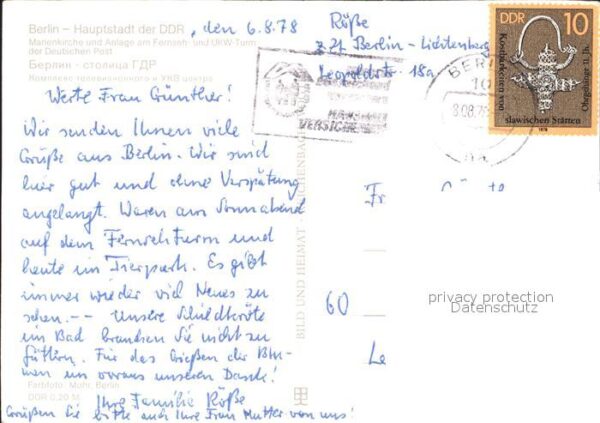 Berlin – Hauptstadt der DDR, den 6.8.78
Marienkirche und Anlage am Fernseh- und UKW-Turm
der Deutschen Post
Берлин - столица ГДР
Комплекс телевизионного и УКВ центра
Röße
z. Zt. Berlin-Lichtenberg
Leopoldstr. 18a
DDR 10
Kostbarkeiten von slawischen Stätten
Ohrgehänge 11. Jh.
1978
BERLIN
8.08.78
VERSICHE
Werte Frau Günther!
Wir senden Ihnen viele
Grüße aus Berlin. Wir sind
hier gut und ohne Verspätung
angelangt. Waren am Sonnabend
auf dem Fernsehturm und
heute im Tierpark. Es gibt
immer wieder viel Neues zu
sehen. -- Unsere Schildkröte
im Bad brauchen Sie nicht zu
füttern. Für das Gießen der Blu-
men im voraus unseren Dank!
Ihre Familie Röße
Grüßen Sie bitte auch Ihre Frau Mutter von uns!
Farbfoto: Mohr, Berlin
DDR 0,20 M
BILD UND HEIMAT REICHENBACH
Fr
60
Le
privacy protection
Datenschutz